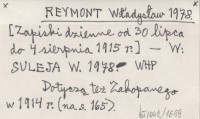 REYMONT Władysław 1978.
[Zapiski dzienne od 30 lipca
do 4 sierpnia 1915 r.] — W:
SULEJA W. 1978. WHP
Dotyczą też Zakopanego
w 1914 r. (na s. 165).